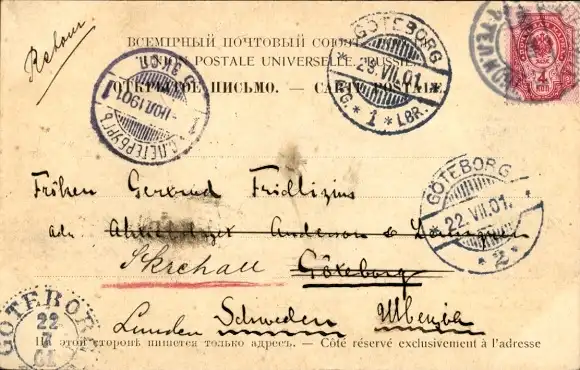 Retour
ВСЕМІРНЫЙ ПОЧТОВЫЙ СОЮЗ
UNION POSTALE UNIVERSELLE. RUSSIE.
ОТКРЫТОЕ ПИСЬМО. — CARTE POSTALE.
GÖTEBORG
23.VII.01.
1 LBR.
С.ПЕТЕРБУРГЪ
1901
4
GÖTEBORG
22.VII.01.
2
Fröken Gertrud Fridlizius
adr Aktiebolaget Anderson &
Göteborg
Schweden
GÖTEBORG
22
7
01
На этой сторонѣ пишется только адресъ. — Côté réservé exclusivement à l'adresse